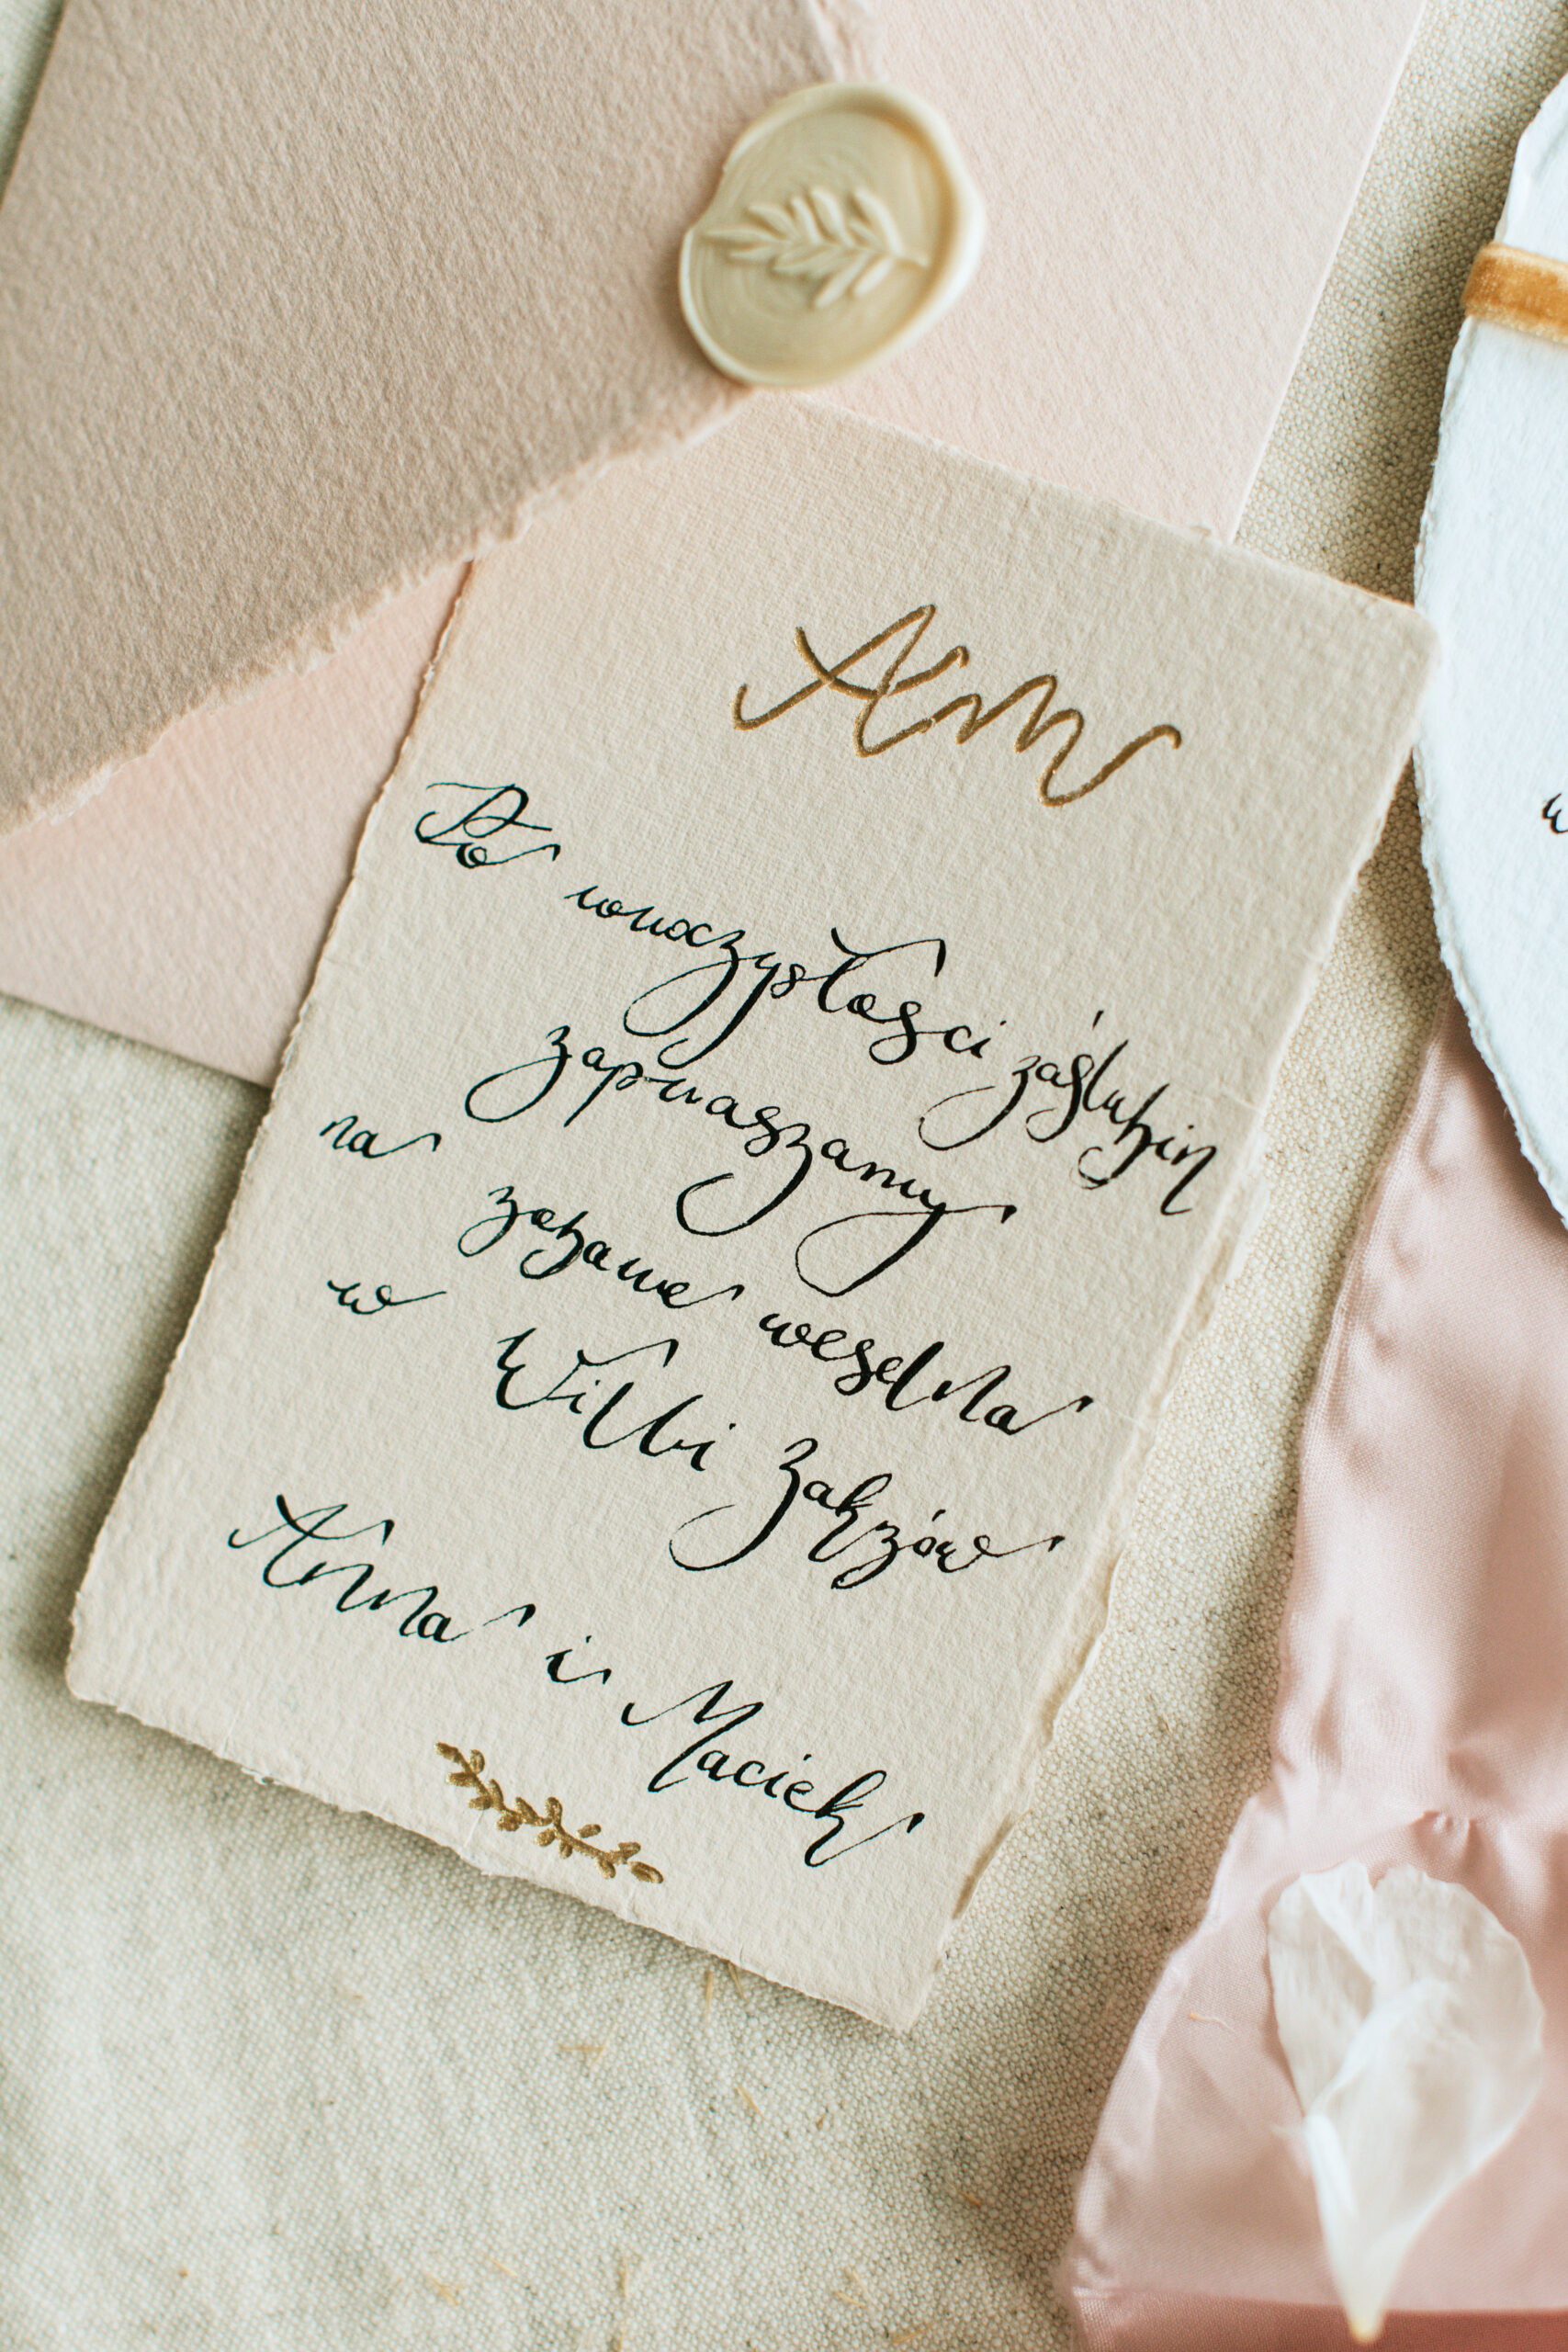 AM
Po uroczystości zaślubin
zapraszamy
na zabawę weselną
w Willi Zakrzów
Anna i Maciek
w